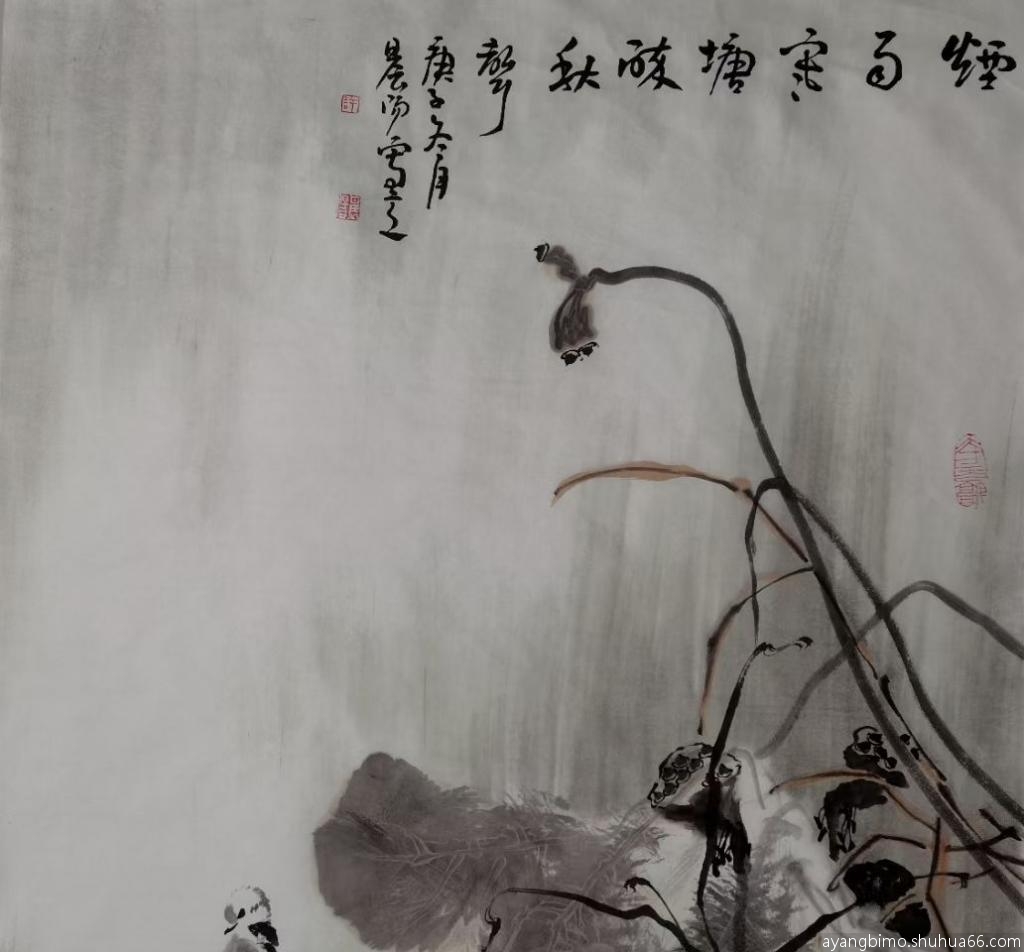 煙雨寒塘秋聲
庚子冬月
晨阳
ayangbimo.shuhua66.com